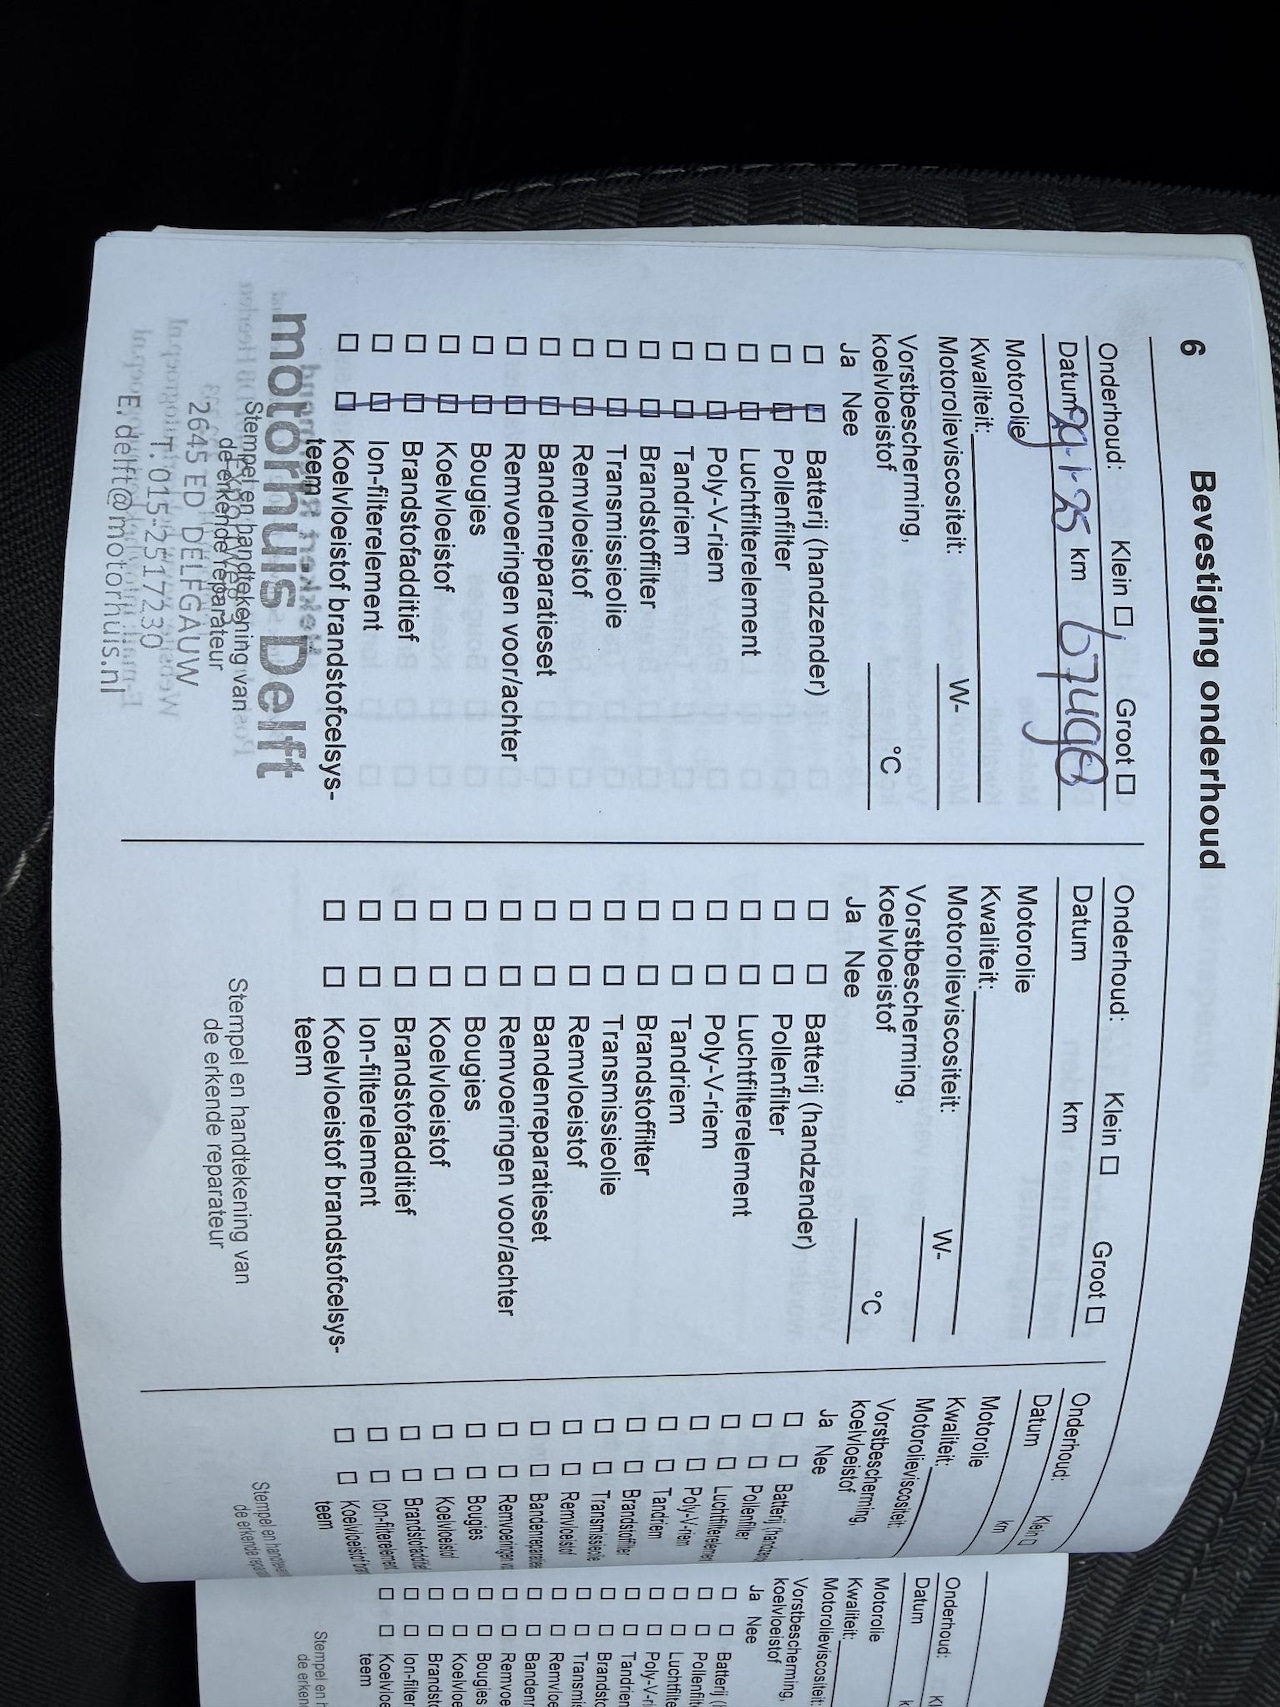 6
Bevestiging onderhoud
Onderhoud: Klein Groot
Datum 29-1-25 km
Motorolie
Kwaliteit:
Motorolieviscositeit: W-
Vorstbescherming,
koelvloeistof °C
Ja Nee
Batterij (handzender)
Pollenfilter
Luchtfilterelement
Poly-V-riem
Tandriem
Brandstoffilter
Transmissieolie
Remvloeistof
Bandenreparatieset
Remvoeringen voor/achter
Bougies
Koelvloeistof
Brandstofadditief
Ion-filterelement
Koelvloeistof brandstofcelsys-
teem
motorhuis Delft
Stempel en handtekening van
de erkende reparateur
2645 ED DELFGAUW
T. 015-2517230
E. delft@motorhuis.nl
Onderhoud: Klein Groot
Datum km
Motorolie
Kwaliteit:
Motorolieviscositeit: W-
Vorstbescherming,
koelvloeistof °C
Ja Nee
Batterij (handzender)
Pollenfilter
Luchtfilterelement
Poly-V-riem
Tandriem
Brandstoffilter
Transmissieolie
Remvloeistof
Bandenreparatieset
Remvoeringen voor/achter
Bougies
Koelvloeistof
Brandstofadditief
Ion-filterelement
Koelvloeistof brandstofcelsys-
teem
Stempel en handtekening van
de erkende reparateur
Onderhoud: Klein
Datum km
Motorolie
Kwaliteit:
Motorolieviscositeit:
Vorstbescherming,
koelvloeistof
Ja Nee
Batterij (handzen
Pollenfilter
Luchtfilterelemen
Poly-V-riem
Tandriem
Brandstoffilter
Transmissieolie
Remvloeistof
Bandenreparaties
Remvoeringen vo
Bougies
Koelvloeistof
Brandstofadditief
Ion-filterelement
Koelvloeistof bran
teem
Stempel en handteke
de erkende repa
Onderhoud: Kl
Datum k
Motorolie
Kwaliteit:
Motorolieviscositeit:
Vorstbescherming,
koelvloeistof
Ja Nee
Batterij (
Pollenfilt
Luchtfilte
Poly-V-ri
Tandrien
Brandsto
Transmis
Remvloe
Bandenr
Remvoe
Bougies
Koelvloe
Brandsto
Ion-filter
Koelvloe
teem
Stempel en h
de erken